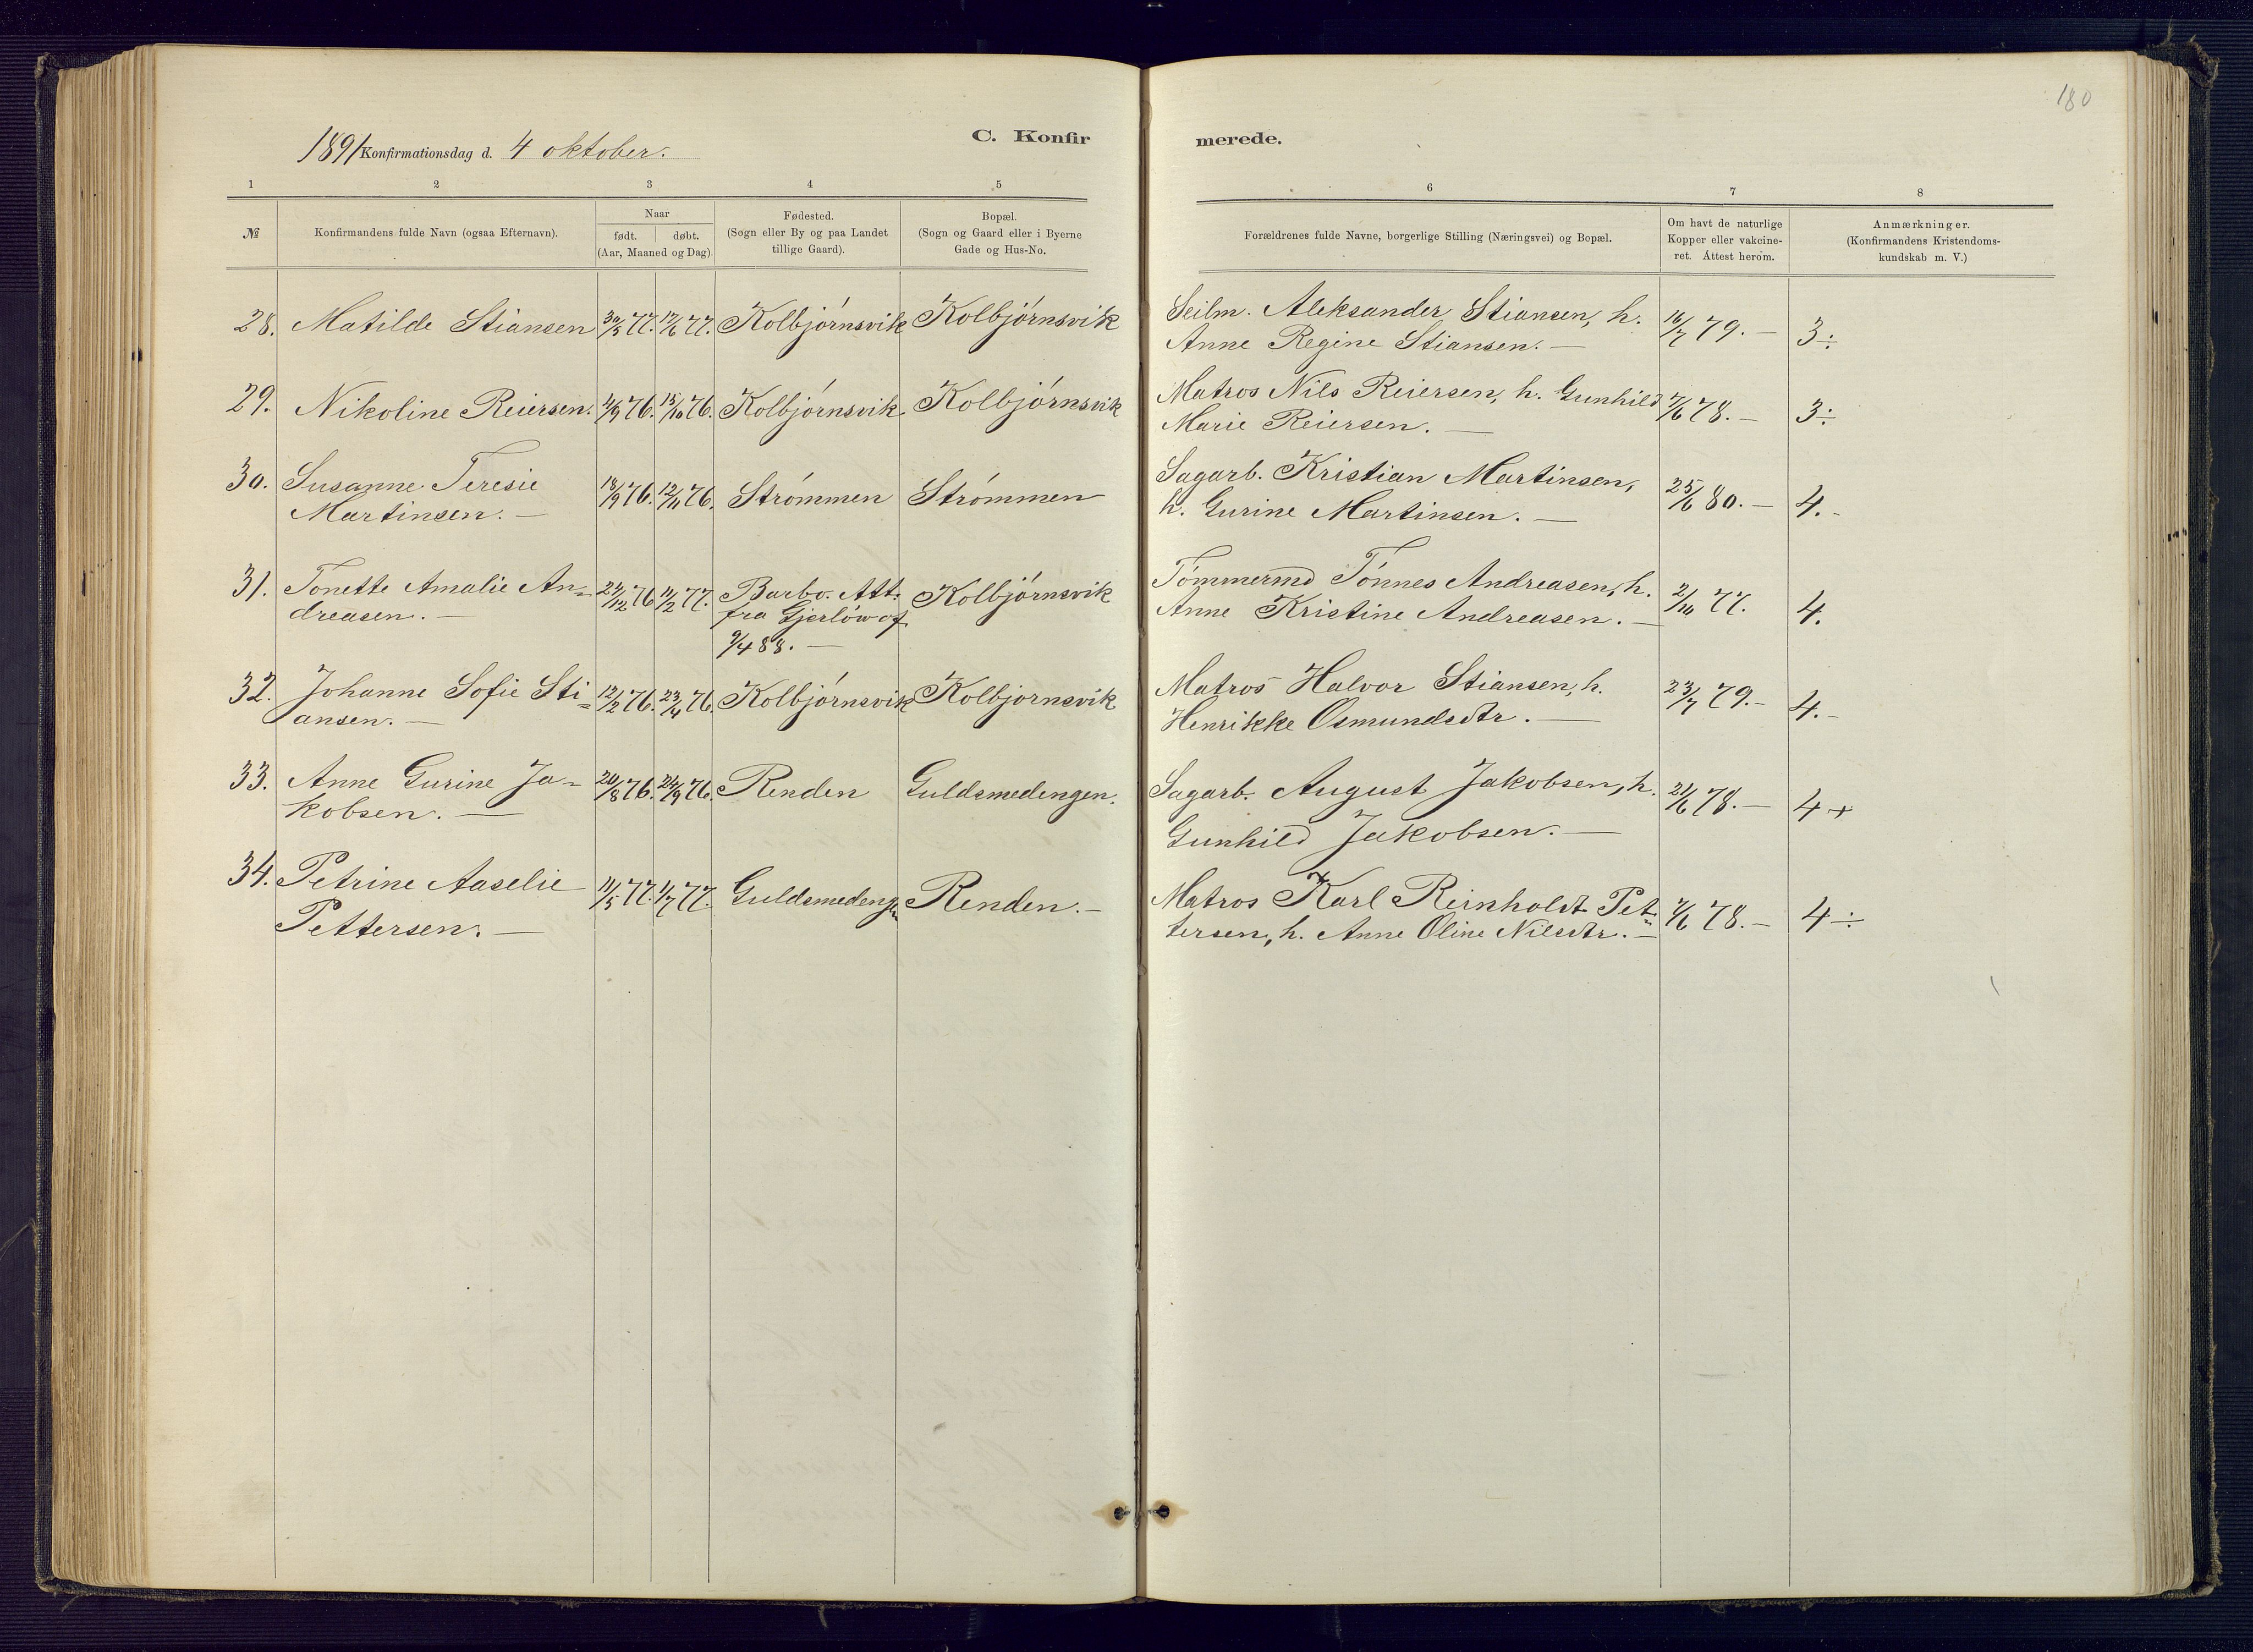 180
C. Konfir merede.
1891 Konfirmationsdag d. 4 oktober.
1 2 3 4 5 6 7 8
№ Konfirmandens fulde Navn (ogsaa Efternavn). Naar født. døbt. (Aar, Maaned og Dag). Fødested. (Sogn eller By og paa Landet tillige Gaard). Bopæl. (Sogn og Gaard eller i Byerne Gade og Hus-No. Forældrenes fulde Navne, borgerlige Stilling (Næringsvei) og Bopæl. Om havt de naturlige Kopper eller vakcine-ret. Attest herom. Anmærkninger. (Konfirmandens Kristendoms-kundskab m. V.)
28. Matilde Stiansen 30/5 77. 17/6 77. Kolbjórnsvik Kolbjórnsvik Seilm. Aleksander Stiansen, h. 16/7 79. — 3 ÷
Anne Regine Stiansen. —
29. Nikoline Reiersen. 4/9 76. 15/10 76. Kolbjórnsvik. Kolbjórnsvik Matros Nils Reiersen, h. Gunhild 7/6 78. — 3 ÷
Marie Reiersen. —
30. Susanne Teresie 18/9 76. 12/11 76. Strómmen Strómmen Sagarb. Kristian Martinsen, 25/6 80. — 4. -
Martinsen. — h. Gurine Martinsen. —
31. Tonette Amalie An= 24/12 76 11/2 77. Barbo. Att. Kolbjórnsvik Tómmermd Tónnes Andreasen, h. 2/10 77. 4.
dreasen. — fra Gjerlów af Anne Kristine Andreasen. —
9/4 88. —
32. Johanne Sofie Sti= 12/2 76. 23/4 76. Kolbjórnsvik Kolbjornsvik Matros Halvor Stiansen, h. 23/7 79. - 4. -
ansen. — Henrikke Osmundsdtr. —
33. Anne Gurine Ja= 20/8 76. 24/9 76. Renden Guldsmedengen. Sagarb. August Jakobsen, h. 21/6 78. — 4 +
kobsen. — Gunhild Jakobsen. —
34. Petrine Aaselie 11/5 77. 1/7 77. Guldsmedengen Renden. - Matros Karl Reinholdt Pet= 7/6 78. — 4 ÷
Pettersen. — tersen, h. Anne Oline Nilsdtr. —